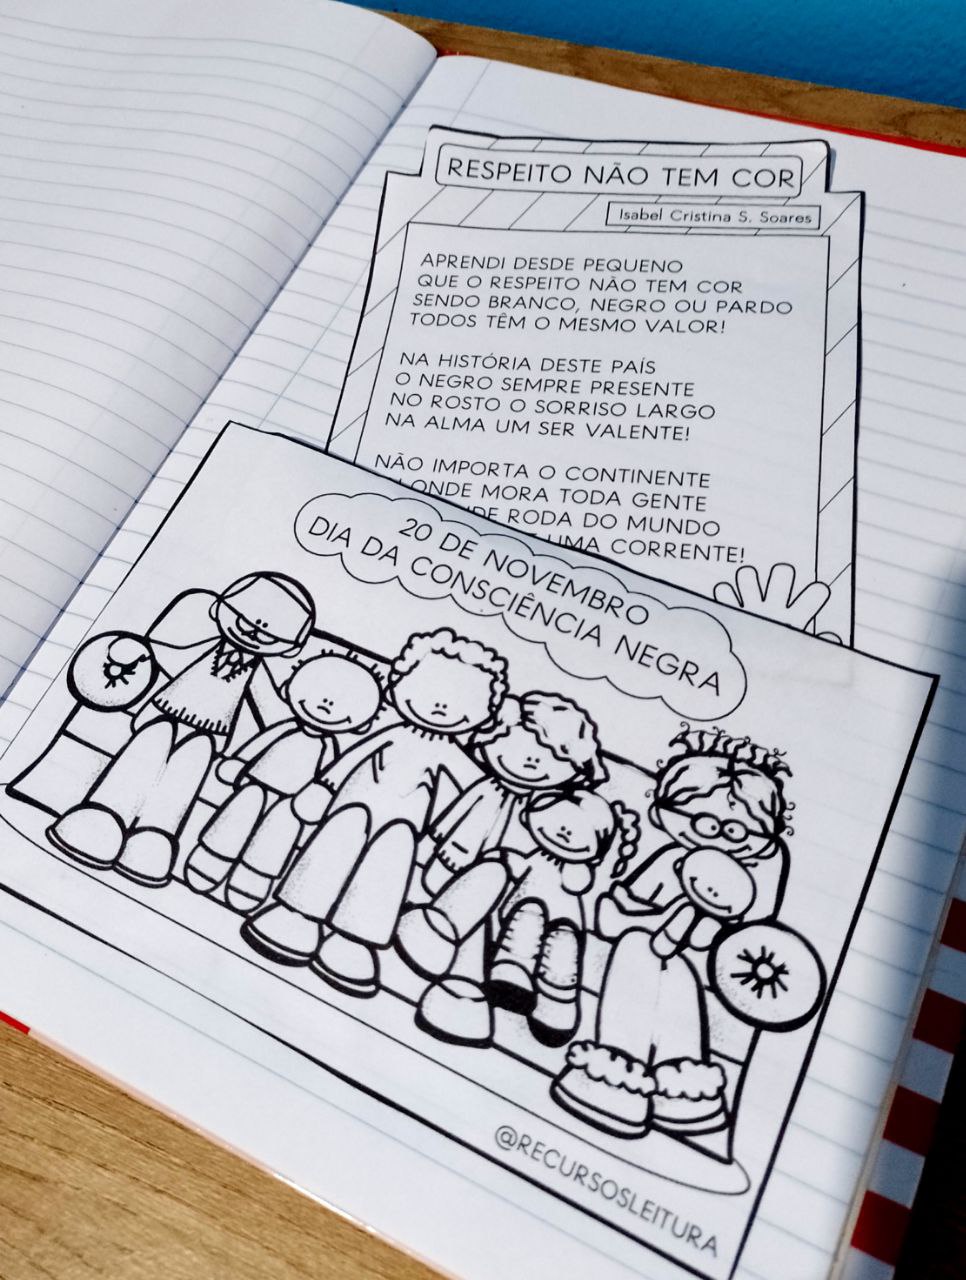 RESPEITO NÃO TEM COR
Isabel Cristina S. Soares
APRENDI DESDE PEQUENO
QUE O RESPEITO NÃO TEM COR
SENDO BRANCO, NEGRO OU PARDO
TODOS TÊM O MESMO VALOR!
NA HISTÓRIA DESTE PAÍS
O NEGRO SEMPRE PRESENTE
NO ROSTO O SORRISO LARGO
NA ALMA UM SER VALENTE!
NÃO IMPORTA O CONTINENTE
ONDE MORA TODA GENTE
RODA DO MUNDO
UMA CORRENTE!
20 DE NOVEMBRO
DIA DA CONSCIÊNCIA NEGRA
@RECURSOSLEITURA